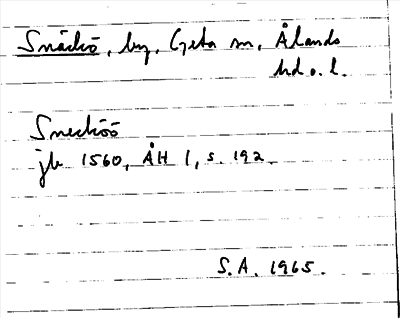 Snäckö, by, Geta sn, Ålands
hd o. l.
Snecköö
jb 1560, ÅH 1, s. 192
S.A. 1965.